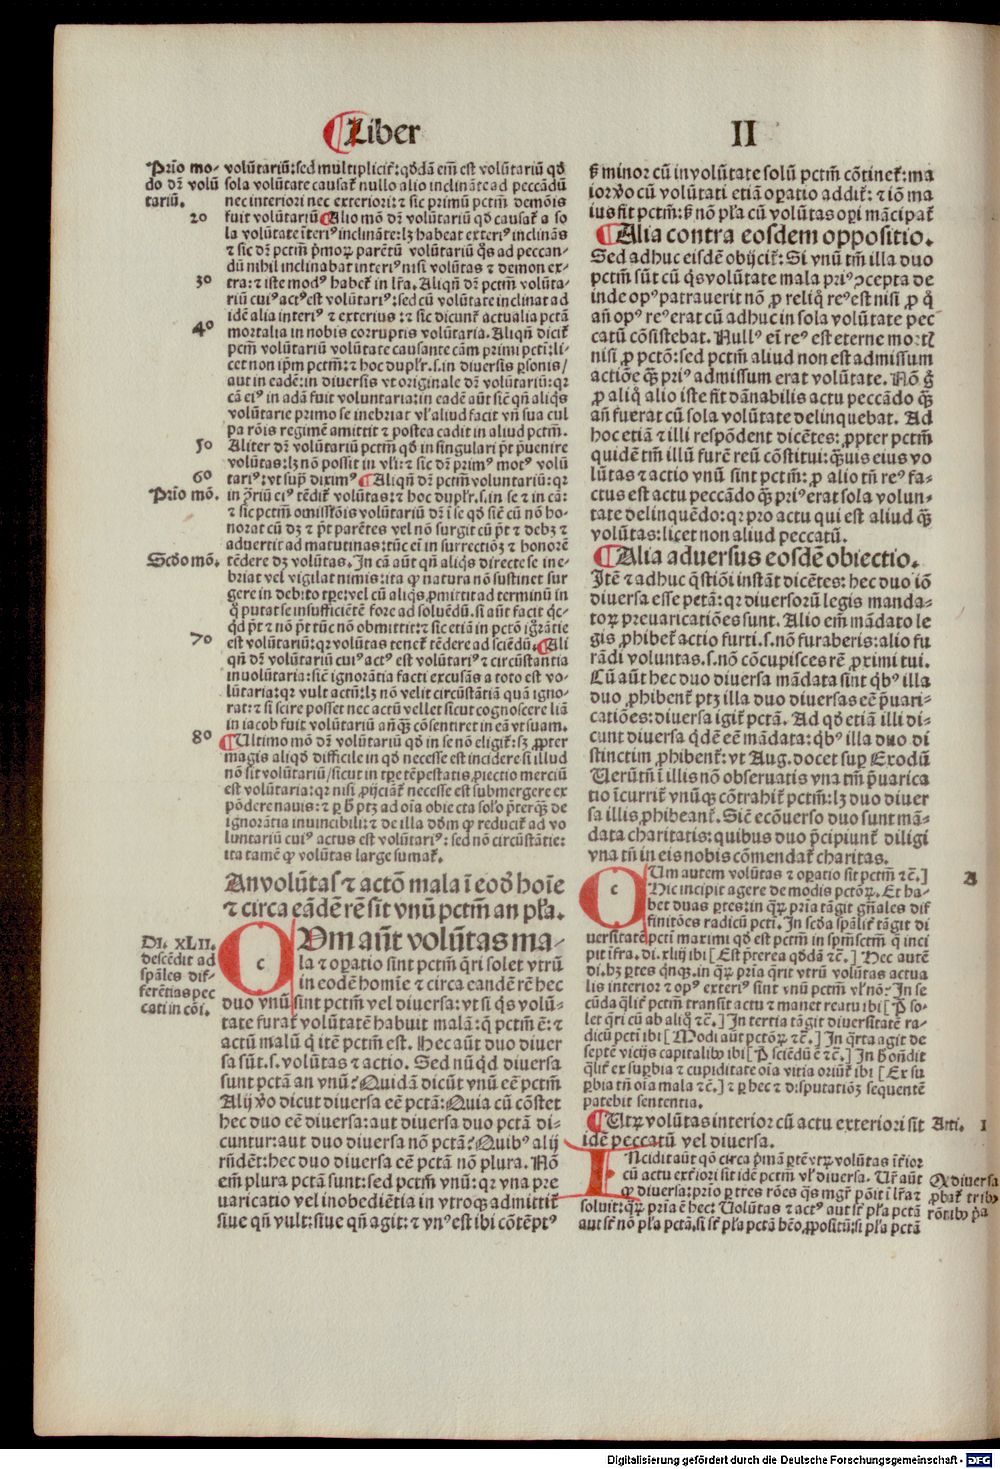 Liber
II
Prīo mo-
do dr̄ volū
tariū.
20
30
40
50
60
Prīo mō.
Scd̄o mō.
70
80
voluntariū: sed multiplicit̄: qd̄dā em̄ est volūtariū qd̄
sola volūtate causat̄ nullo alio inclināte ad peccādū
nec interiori nec exteriori: ⁊ sic primū pctm̄ demōis
fuit voluntariū ¶ Alio mō dr̄ volūtariū qd̄ causat̄ a so
la volūtate īteri⁹ inclināte: lꝫ habeat exteri⁹ inclinās
⁊ sic dr̄ pctm̄ p̄moꝝ parētū voluntariū q̄s ad peccan-
dū nihil inclinabat interi⁹ nisi volūtas ⁊ demon ex-
tra: ⁊ iste mod⁹ habet̄ in lr̄a. Aliqn̄ dr̄ pctm̄ volūta-
riū cui⁹ act⁹ est volūtari⁹: sed cū volūtate inclinat ad
idē alia interi⁹ ⁊ exterius: ⁊ sic dicunt̄ actualia pctā
mortalia in nobis corruptis volūtaria. Aliqn̄ dicit̄
pctm̄ volūtariū volūtate causante cām primi pcti: li-
cet non ip̄m pctm̄: ⁊ hoc duplr̄. s. in diversis ꝑsonis/
aut in eadē: in diversis vt originale dr̄ volūtariū: qꝛ
cā ei⁹ in adā fuit voluntaria: in eadē aūt siē qn̄ aliq̄s
volūtarie primo se inebriat vl̓ aliud facit vn̄ sua cul
pa rōis regimē amittit ⁊ postea cadit in aliud pctm̄.
Aliter dr̄ volūtariū pctm̄ qd̄ in singulari pt̄ p̄uenire
volūtas: lꝫ nō possit in vl̓i: ⁊ sic dr̄ prim⁹ mot⁹ volū
tari⁹: vt supͣ dixim⁹ ¶ Aliqn̄ dr̄ pctm̄ voluntariū: qꝛ
in p̄riū ei⁹ tēdit̄ volūtas: ⁊ hoc duplr̄. s. in se ⁊ in cā:
⁊ sic pctm̄ omissiōis volūtariū dr̄ ī se qd̄ siē cū nō ho-
norat cū dꝫ ⁊ pt̄ parētes vel nō surgit cū pt̄ ⁊ debꝫ ⁊
advertit ad matutinas: tūc ei̓ in surrectiōꝫ ⁊ honorē
tēdere dꝫ volūtas. In cā aūt qn̄ aliq̄s directe se ine-
briat vel vigilat nimis: ita ꝙ natura nō sustinet sur
gere in debito tꝑe: vel cū aliq̄s ꝓmittit ad terminū in
q̄ putat se insufficiētē fore ad soluēdū. si aūt facit q̄c-
qd̄ pt̄ ⁊ nō pt̄ tūc nō obmittit: ⁊ sic etiā in pctō īgr̄atie
est volūtariū: qꝛ volūtas tenet̄ tēdere ad sciēdū. ¶ Ali
qn̄ dr̄ volūtariū cui⁹ act⁹ est volūtari⁹ ⁊ circūstantia
inuolūtaria: siē ignorātia facti excusās a toto est vo-
lūtaria: qꝛ vult actū: lꝫ nō velit circūstātiā quā igno-
rat: ⁊ si scire posset nec actū vellet sicut cognoscere liā
in iacob fuit volūtariū añq̄ꝫ cōsentiret in eā vt suam.
¶ Ultimo mō dr̄ volūtariū qd̄ in se nō eligit̄: sꝫ ꝓpter
magis aliqd̄ difficile in qd̄ necesse est incidere si illud
nō sit volūtariū/sicut in tꝑe tēpestatis ꝓiectio merciū
est volūtaria: qꝛ nisi ꝓijciant̄ necesse est submergere ex
pōdere nauis: ⁊ ꝑ h̄ ptꝫ ad oīa obiecta solo p̄terq̄ꝫ de
ignorātia inuincibili: ⁊ de illa dōm ꝙ reducit̄ ad vo
luntariū cui⁹ actus est volūtari⁹: sed nō circūstātie:
ita tamē ꝙ volūtas large sumat̄.
An volūtas ⁊ actō mala ī eod̄ hoīe
⁊ circa eādē rē sīt vnū pctm̄ an pl̓a.
DI. XLII.
descēdit ad
spāles dif-
ferētias pec
cati in cōi.
c
QUm aūt volūtas ma-
la ⁊ oꝑatio sint pctm̄ q̄ri solet vtrū
in eodē homīe ⁊ circa eandē rē hec
duo vnū sint pctm̄ vel diversa: vt si q̄s volū-
tate furat̄ volūtatē habuit malā: q̄ pctm̄ ē: ⁊
actū malū q̄ itē pctm̄ est. Hec aūt duo diver
sa sūt. s. volūtas ⁊ actio. Sed nūqd̄ diversa
sunt pctā an vnū? Quidā dicūt vnū eē pctm̄
Alij v̄o dicūt diversa eē pctā: Quia cū cōstet
hec duo eē diversa: aut diversa duo pctā di-
cuntur: aut duo diversa nō pctā? Quib⁹ alij
rn̄dēt: hec duo diversa eē pctā nō plura. Nō
em̄ plura pctā sunt: sed pctm̄ vnū: qꝛ vna pre
uaricatio vel inobediētia in vtroqꝫ admittit̄
siue qn̄ vult: siue qn̄ agit: ⁊ vn⁹ est ibi cōtēpt⁹
s̄ minoꝛ cū in volūtate solū pctm̄ cōtinet̄: ma
ioꝛ v̄o cū volūtati etiā oꝑatio addit̄: ⁊ iō ma
ius fit pctm̄: s̄ nō pl̓a cū volūtas oꝑi mācipat̄
¶ Alia contra eosdem oppositio.
Sed adhuc eisdē obijcit̄: Si vnū tm̄ illa duo
pctm̄ sūt cū q̄s volūtate mala pri⁹ ꝯcepta de
inde op⁹ patrauerit nō ꝓ reliq̄ re⁹ est nisi ꝓ q̄
añ op⁹ re⁹ erat cū adhuc in sola volūtate pec
catū cōsistebat. Null⁹ ei̓ re⁹ est eterne mortꝭ
nisi ꝓ pctō: sed pctm̄ aliud non est admissum
actiōe q̄ꝫ pri⁹ admissum erat volūtate. Nō g̊
ꝓ aliq̄ alio iste fit dānabilis actu peccādo q̄ꝫ
añ fuerat cū sola volūtate delinquebat. Ad
hoc etiā ⁊ illi respōdent dicētes: ꝓpter pctm̄
quidē tm̄ illū furē reū cōstitui: q̄ꝫuis eius vo
lūtas ⁊ actio vnū sint pctm̄: ꝓ alio tn̄ re⁹ fa-
ctus est actu peccādo q̄ꝫ pri⁹ erat sola volun-
tate delinquēdo: qꝛ pro actu qui est aliud q̄ꝫ
volūtas: licet non aliud peccatū.
¶ Alia adversus eosdē obiectio.
Itē ⁊ adhuc q̄stiōi instāt dicētes: hec duo iō
diversa esse pctā: qꝛ diversorū legis manda-
toꝝ preuaricatiōes sunt. Alio em̄ mādato le
gis ꝓhibet̄ actio furti. s. nō furaberis: alio fu
rādi voluntas. s. nō cōcupisces rē ꝓximi tui.
Cū aūt hec duo diversa mādata sint q̄b⁹ illa
duo ꝓhibent̄ ptꝫ illa duo diversas eē p̄uari-
catiōes: diversa igit̄ pctā. Ad qd̄ etiā illi di-
cunt diversa q̄dē eē mādata: q̄b⁹ illa duo di
stinctim ꝓhibent̄: vt Aug. docet suꝑ Exodū
Uerūtn̄ ī illis nō observatis vna tm̄ p̄uarica
tio īcurrit̄ vnūqꝫ cōtrahit̄ pctm̄: lꝫ duo diver
sa illis ꝓhibeant̄. Siē ecōuerso duo sunt mā-
data charitatis: quibus duo p̄cipiunt̄ diligi
vna tn̄ in eis nobis cōmendat̄ charitas.
A
c
QUm autem volūtas ⁊ oꝑatio sit pctm̄ ⁊c̄.]
Hic incipit agere de modis pctōꝝ. Et ha-
bet duas ꝑtes: in q̄ꝝ pria tāgit gn̄ales dif
finitōes radicū pcti. In scd̄a spālit̄ tāgit di
uersitatē pcti maximi qd̄ est pctm̄ in spm̄sctm̄ q̄ inci
pit ifra. di. xliij ibi [Est p̄terea qd̄dā ⁊c̄.] Hec autē
di. hꝫ ꝑtes q̄nqꝫ. in q̄ꝝ pria q̄rit vtrū volūtas actua
lis interioꝛ ⁊ op⁹ exteri⁹ sint vnū pctm̄ vl̓ nō: In se
cūda q̄lit̄ pctm̄ transit actu ⁊ manet reatu ibi [P̄ so-
let q̄ri cū ab aliq̄ ⁊c̄.] In tertia tāgit diversitatē ra-
dicū pcti ibi [Modi aūt pctōꝝ ⁊c̄.] In q̄rta agit de
septē vicijs capitalibꝰ ibi [P̄ sciēdū ē ⁊c̄.] In h̄ oñdit
q̄lit̄ ex suꝑbia ⁊ cupiditate oīa vitia oriūt̄ ibi [Ex su
ꝑbia tn̄ oīa mala ⁊c̄.] ⁊ ꝑ hec ⁊ disputatiōꝫ sequentē
patebit sententia.
¶ Utrꝝ volūtas interioꝛ cū actu exteriori sīt
idē peccatū vel diversa.
Arti. 1
INcidit aūt qō circa p̄mā ꝑtē vtrꝝ volūtas īt̄ioꝛ
cū actu ext̄iori sit idē pctm̄ vl̓ diversa. Ur̄ aūt
ꝙ diversa: prīo ꝑ tres rōes q̄s mgr̄ pōit ī lr̄a ⁊
soluit: q̄ꝝ pria ē hec: Uolūtas ⁊ act⁹ aut st̄ pl̓a pctā
aut st̄ nō pl̓a pctā. si st̄ pl̓a pctā h̄eo ꝓpositū: si pl̓a pctā
Qꝫ diversa
ꝓbat̄ tribꝰ
rōnibꝰ p̄a
Digitalisierung gefördert durch die Deutsche Forschungsgemeinschaft - DFG